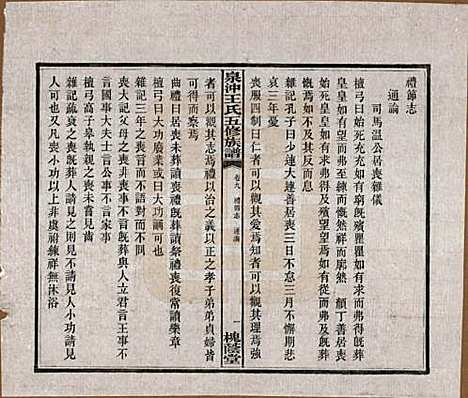 禮節志
通論
司馬溫公居喪雜儀
檀弓曰始死充充如有窮既殯瞿瞿如有求而弗得既葬
皇皇如有望而弗至練而慨然祥而廓然 顏丁善居喪
始死皇皇焉如有求而弗得及殯望望焉如有從而弗及既葬
慨焉如不及其反而息
雜記孔子曰少連大連善居喪三日不怠三月不懈期悲
哀三年憂
喪服四制曰仁者可以觀其愛焉知者可以觀其理焉強
泉沖王氏五修族譜
卷九 禮節志 通論
一
槐蔭堂
者可以觀其志焉禮以治之義以正之孝子弟弟貞婦皆
可得而察焉
曲禮曰居喪未葬讀喪禮既葬讀祭禮喪復常讀樂章
檀弓曰大功廢業或曰大功誦可也
雜記三年之喪言而不語對而不問
喪大記父母之喪非喪事不言既葬與人立君言王事不
言國事大夫士言公事不言家事
檀弓高子皋執親之喪未嘗見齒
雜記疏衰之喪既葬人請見之則見不請見人小功請見
人可也又凡喪小功以上非虞祔練祥無沐浴